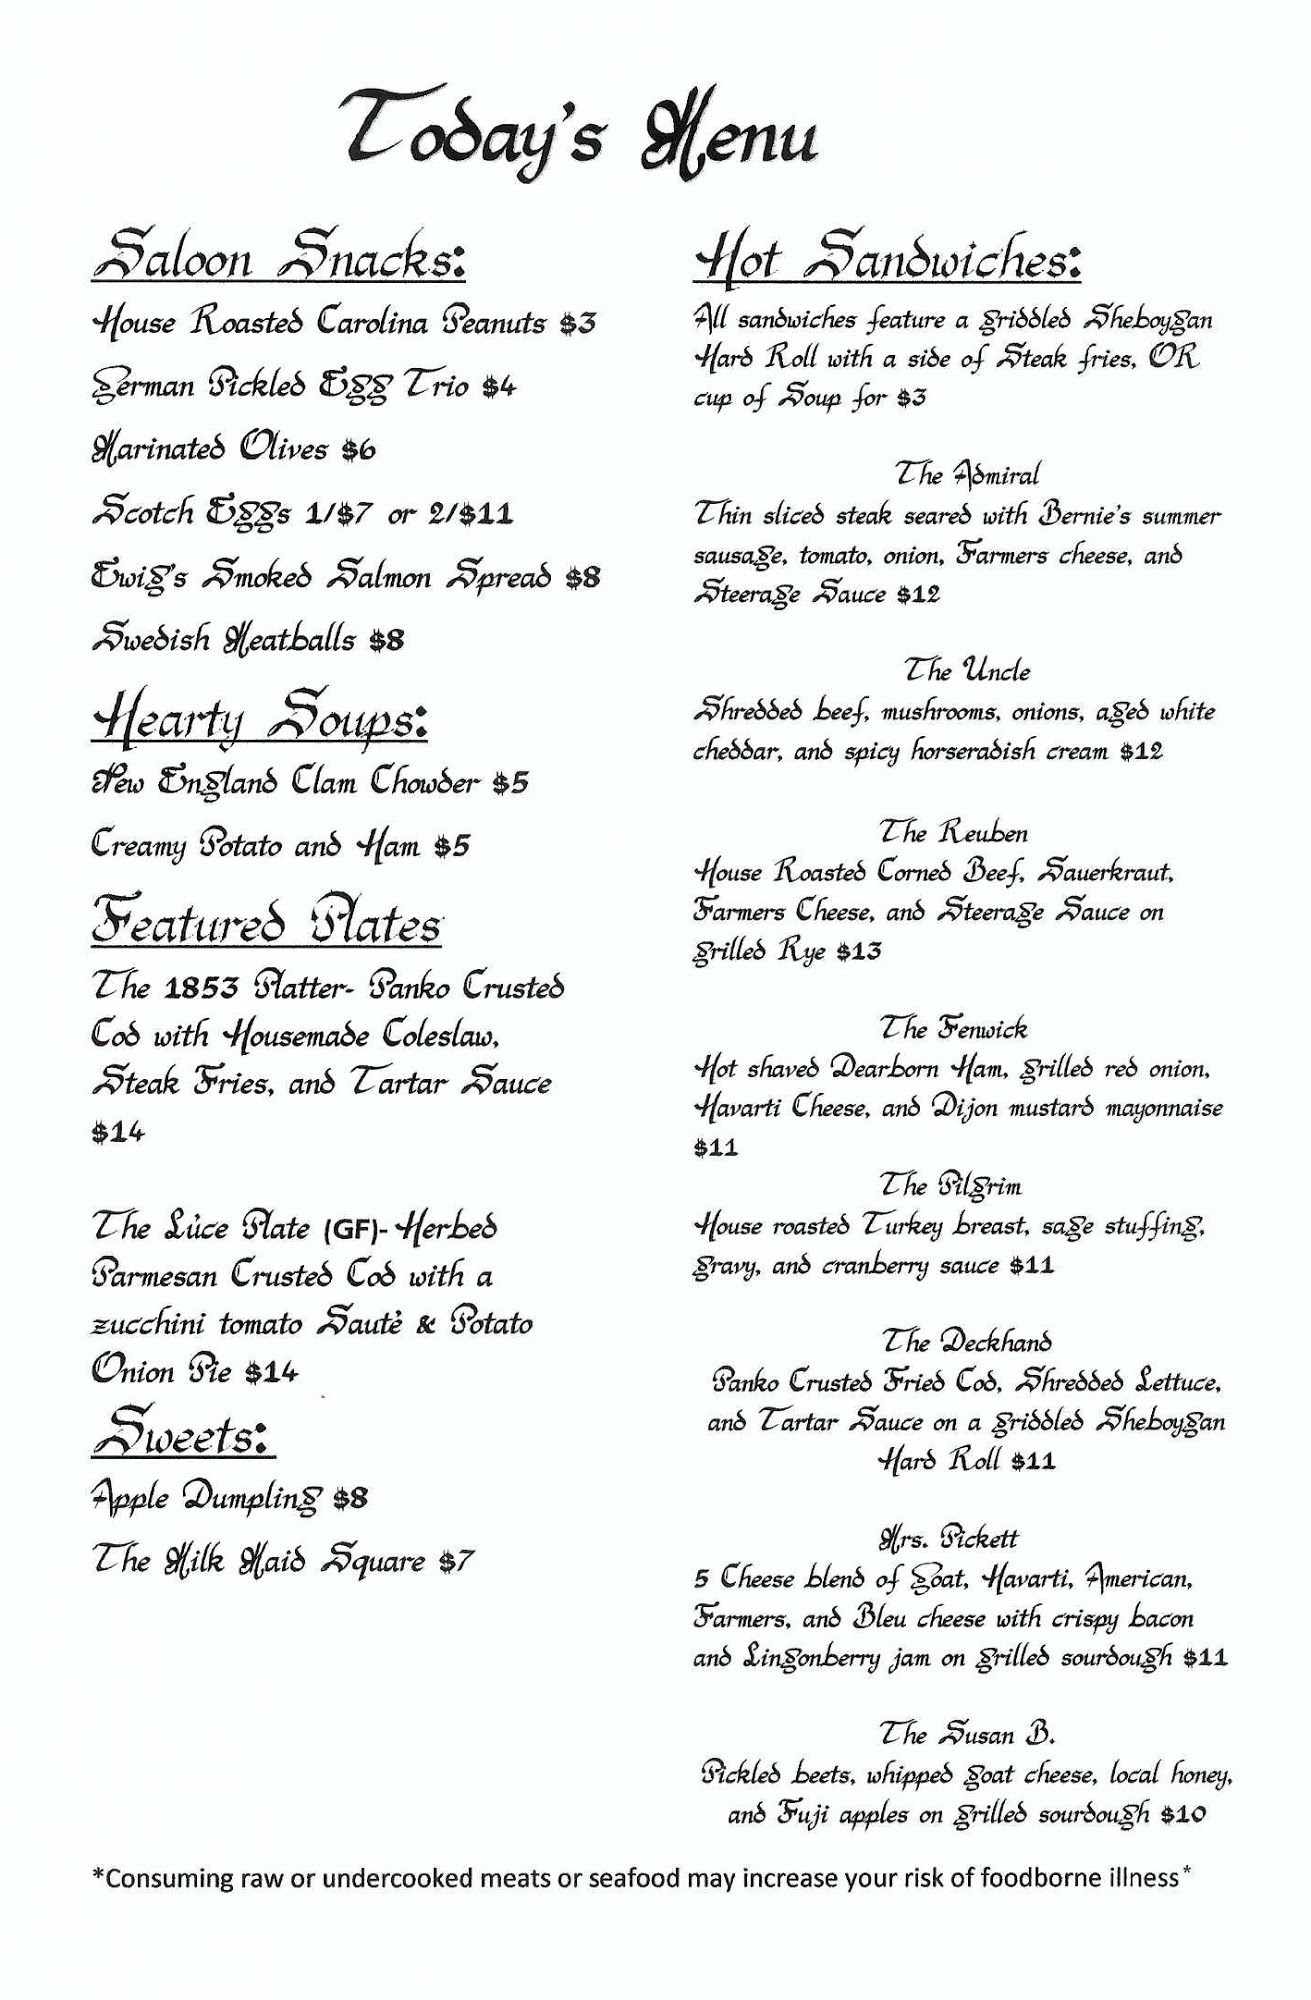 Today's Menu
Saloon Snacks:
House Roasted Carolina Peanuts $3
German Pickled Egg Trio $4
Marinated Olives $6
Scotch Eggs 1/$7 or 2/$11
Ewig's Smoked Salmon Spread $8
Swedish Meatballs $8
Hearty Soups:
New England Clam Chowder $5
Creamy Potato and Ham $5
Featured Plates
The 1853 Platter- Panko Crusted
Cod with Housemade Coleslaw,
Steak Fries, and Tartar Sauce
$14
The Lùce Plate (GF)- Herbed
Parmesan Crusted Cod with a
zucchini tomato Sautè & Potato
Onion Pie $14
Sweets:
Apple Dumpling $8
The Milk Maid Square $7
Hot Sandwiches:
All sandwiches feature a griddled Sheboygan
Hard Roll with a side of Steak fries, OR
cup of Soup for $3
The Admiral
Thin sliced steak seared with Bernie's summer
sausage, tomato, onion, Farmers cheese, and
Steerage Sauce $12
The Uncle
Shredded beef, mushrooms, onions, aged white
cheddar, and spicy horseradish cream $12
The Reuben
House Roasted Corned Beef, Sauerkraut,
Farmers Cheese, and Steerage Sauce on
grilled Rye $13
The Fenwick
Hot shaved Dearborn Ham, grilled red onion,
Havarti Cheese, and Dijon mustard mayonnaise
$11
The Pilgrim
House roasted Turkey breast, sage stuffing,
gravy, and cranberry sauce $11
The Deckhand
Panko Crusted Fried Cod, Shredded Lettuce,
and Tartar Sauce on a griddled Sheboygan
Hard Roll $11
Mrs. Pickett
5 Cheese blend of Goat, Havarti, American,
Farmers, and Bleu cheese with crispy bacon
and Lingonberry jam on grilled sourdough $11
The Susan B.
Pickled beets, whipped goat cheese, local honey,
and Fuji apples on grilled sourdough $10
*Consuming raw or undercooked meats or seafood may increase your risk of foodborne illness*